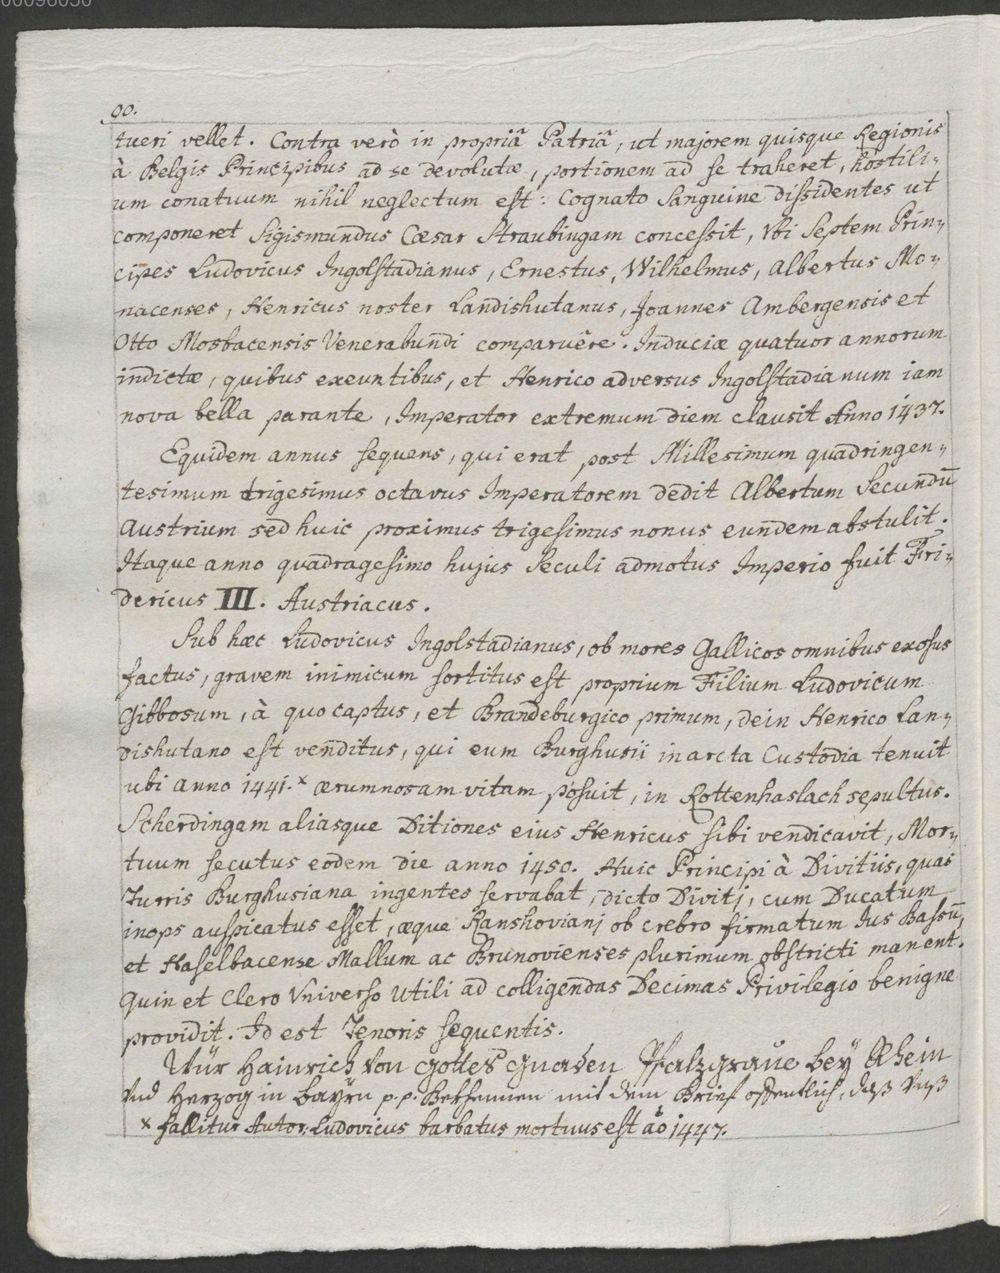 00096050
90.
tueri vellet. Contra verò in propriâ Patriâ, ut majorem quisque Regionis
à Belgis Principibus ad se devolutæ, portionem ad se traheret, hostili„
um conatuum nihil neglectum est: Cognato Sanguine dissidentes ut
componeret Sigismundus Cæsar Straubingam concessit, Vbi Septem Prin„
cipes Ludovicus Ingolstadianus, Ernestus, Wilhelmus, Albertus Mo„
nacenses, Henricus noster Landishutanus, Joannes Ambergensis et
Otto Mosbacensis Venerabundi comparuêre. Induciæ quatuor annorum
indictæ, quibus exeuntibus, et Henrico adversus Ingolstadianum iam
nova bella parante, Imperator extremum diem clausit Anno 1437.
Equidem annus sequens, qui erat post Millesimum quadringen„
tesimum trigesimus octavus Imperatorem dedit Albertum Secundū
Austrium sed huic proximus trigesimus nonus eundem abstulit.
Itaque anno quadragesimo hujus Seculi admotus Imperio fuit Fri„
dericus III. Austriacus.
Sub hæc Ludovicus Ingolstadianus, ob mores Gallicos omnibus exosus
factus, gravem inimicum sortitus est proprium Filium Ludovicum
Gibbosum, à quo captus, et Brandeburgico primum, dein Henrico Lan„
dishutano est venditus, qui eum Burghusii in arcta Custodia tenuit
ubi anno 1441.x ærumnosam vitam posuit, in Rottenhaslach sepultus.
Scherdingam aliasque Ditiones eius Henricus sibi vendicavit, Mor„
tuum secutus eodem die anno 1450. Huic Principi à Divitiis, quas
Turris Burghusiana ingentes servabat, dicto Diviti, cum Ducatum
inops auspicatus esset, æque Ranshoviani ob crebro firmatum Jus Bassū,
et Haselbacense Mallum ac Brunovienses plurimum obstricti manent.
Quin et Clero Vniverso Utili ad colligendas Decimas Privilegio benigne
providit. Id est Tenoris sequentis.
Wür Hainrich von Gottes gnaden Pfalzgraue beÿ Rhein
Vnd Herzog in Bayrn p.p. Bekhennen mit dem Brief offentlich, daß Vnß
x fallitur Autor, Ludovicus barbatus mortuus est aō 1447.